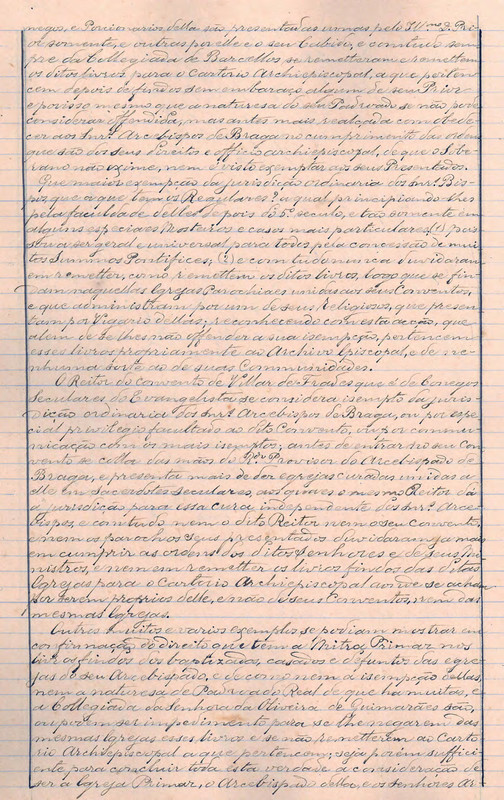 negos, e Porcionarios della são presentadas umas pelo Ill.mo D. Pri-
ol somente, e outras por elle e o seu Cabido, e comtudo sem-
pre da Collegiada de Barcellos se remetteram e remettem
os ditos livros para o Cartorio Archiepiscopal, a que perten-
cem depois de findos sem embaraço algum de seu Prior
e por isso mesmo que a natureza do seu Padroado se não pode
considerar offendida, mas antes mais realçada com obede-
cer aos Snrs. Arcebispos de Braga no cumprimento da ordem
que são dos seus direitos e officio archiepiscopal, de que o Sobe-
rano não exime, nem é visto exemptar aos seus Presentados.
Que maior exempção da jurisdição ordinaria dos Snrs. Bis-
pos, que a que tem os Regulares? a qual principiando-lhes
pela faculdade delles depois do 5º seculo, e tão somente em
alguns especiaes Mosteiros e casos mais particulares, (1) pas-
sou a ser geral e universal para todos pela concessão de mui-
tos Summos Pontifices, (2) e com tudo nunca duvidaram
em remetter, como remettem os ditos livros, logo que se fin-
dam naquellas Egrejas Parochiaes unidas aos seus Conventos,
e que administram por um de seus Religiosos, que presen-
tam por Vigario dellas; reconhecendo com esta acção, que
alem de se lhes não offender a sua isempção, pertencem
esses livros propriamente ao Archivo Episcopal, e de ne-
nhuma sorte ao de suas Communidades.
O Reitor do Convento de Villar de Frades que é de Conegos
Seculares do Evangelista se considera isempto da juris-
dição ordinaria dos Snrs. Arcebispos de Braga, ou por espe-
cial privilegio facultado ao dito Convento, ou por commu-
nicação com os mais isemptos; antes de entrar no seu Con-
vento se colla das mãos do Rdo. Provisor do Arcebispado de
Braga, e presenta mais de dez egrejas curadas unidas a
elle em sacerdotes seculares, aos quaes o mesmo Reitor dá
a jurisdição para essa cura, independente dos Snrs. Arce-
bispos, e comtudo nem o dito Reitor nem o seu Convento,
e nem os parochos seus presentados duvidaram ja mais
em cumprir as ordens dos ditos Senhores e de seus Mi-
nistros, e nem em remetter os livros findos das ditas
Egrejas para o Cartorio Archiepiscopal aonde se acham
por serem proprios delle, e não do seus Conventos, nem das
mesmas Egrejas.
Outros muitos e varios exemplos se podiam mostrar em
confirmação do direito que tem a Mitra Primaz nos
livros findos dos baptizados, casados e defuntos das egre-
jas do seu Arcebispado, e de como nem a isempção dellas,
nem a natureza de Padroado Real de que ha muitas, e
a Collegiada da Senhora da Oliveira de Guimarães são,
ou podem ser impedimento para se lhe negarem das
mesmas Egrejas esses livros e se não remetterem ao Carto-
rio Archiepiscopal a que pertencem; seja porem suffici-
ente para concluir toda esta verdade a consideração de
ser a Egreja Primaz, o Arcebispado della, e os senhores Ar-